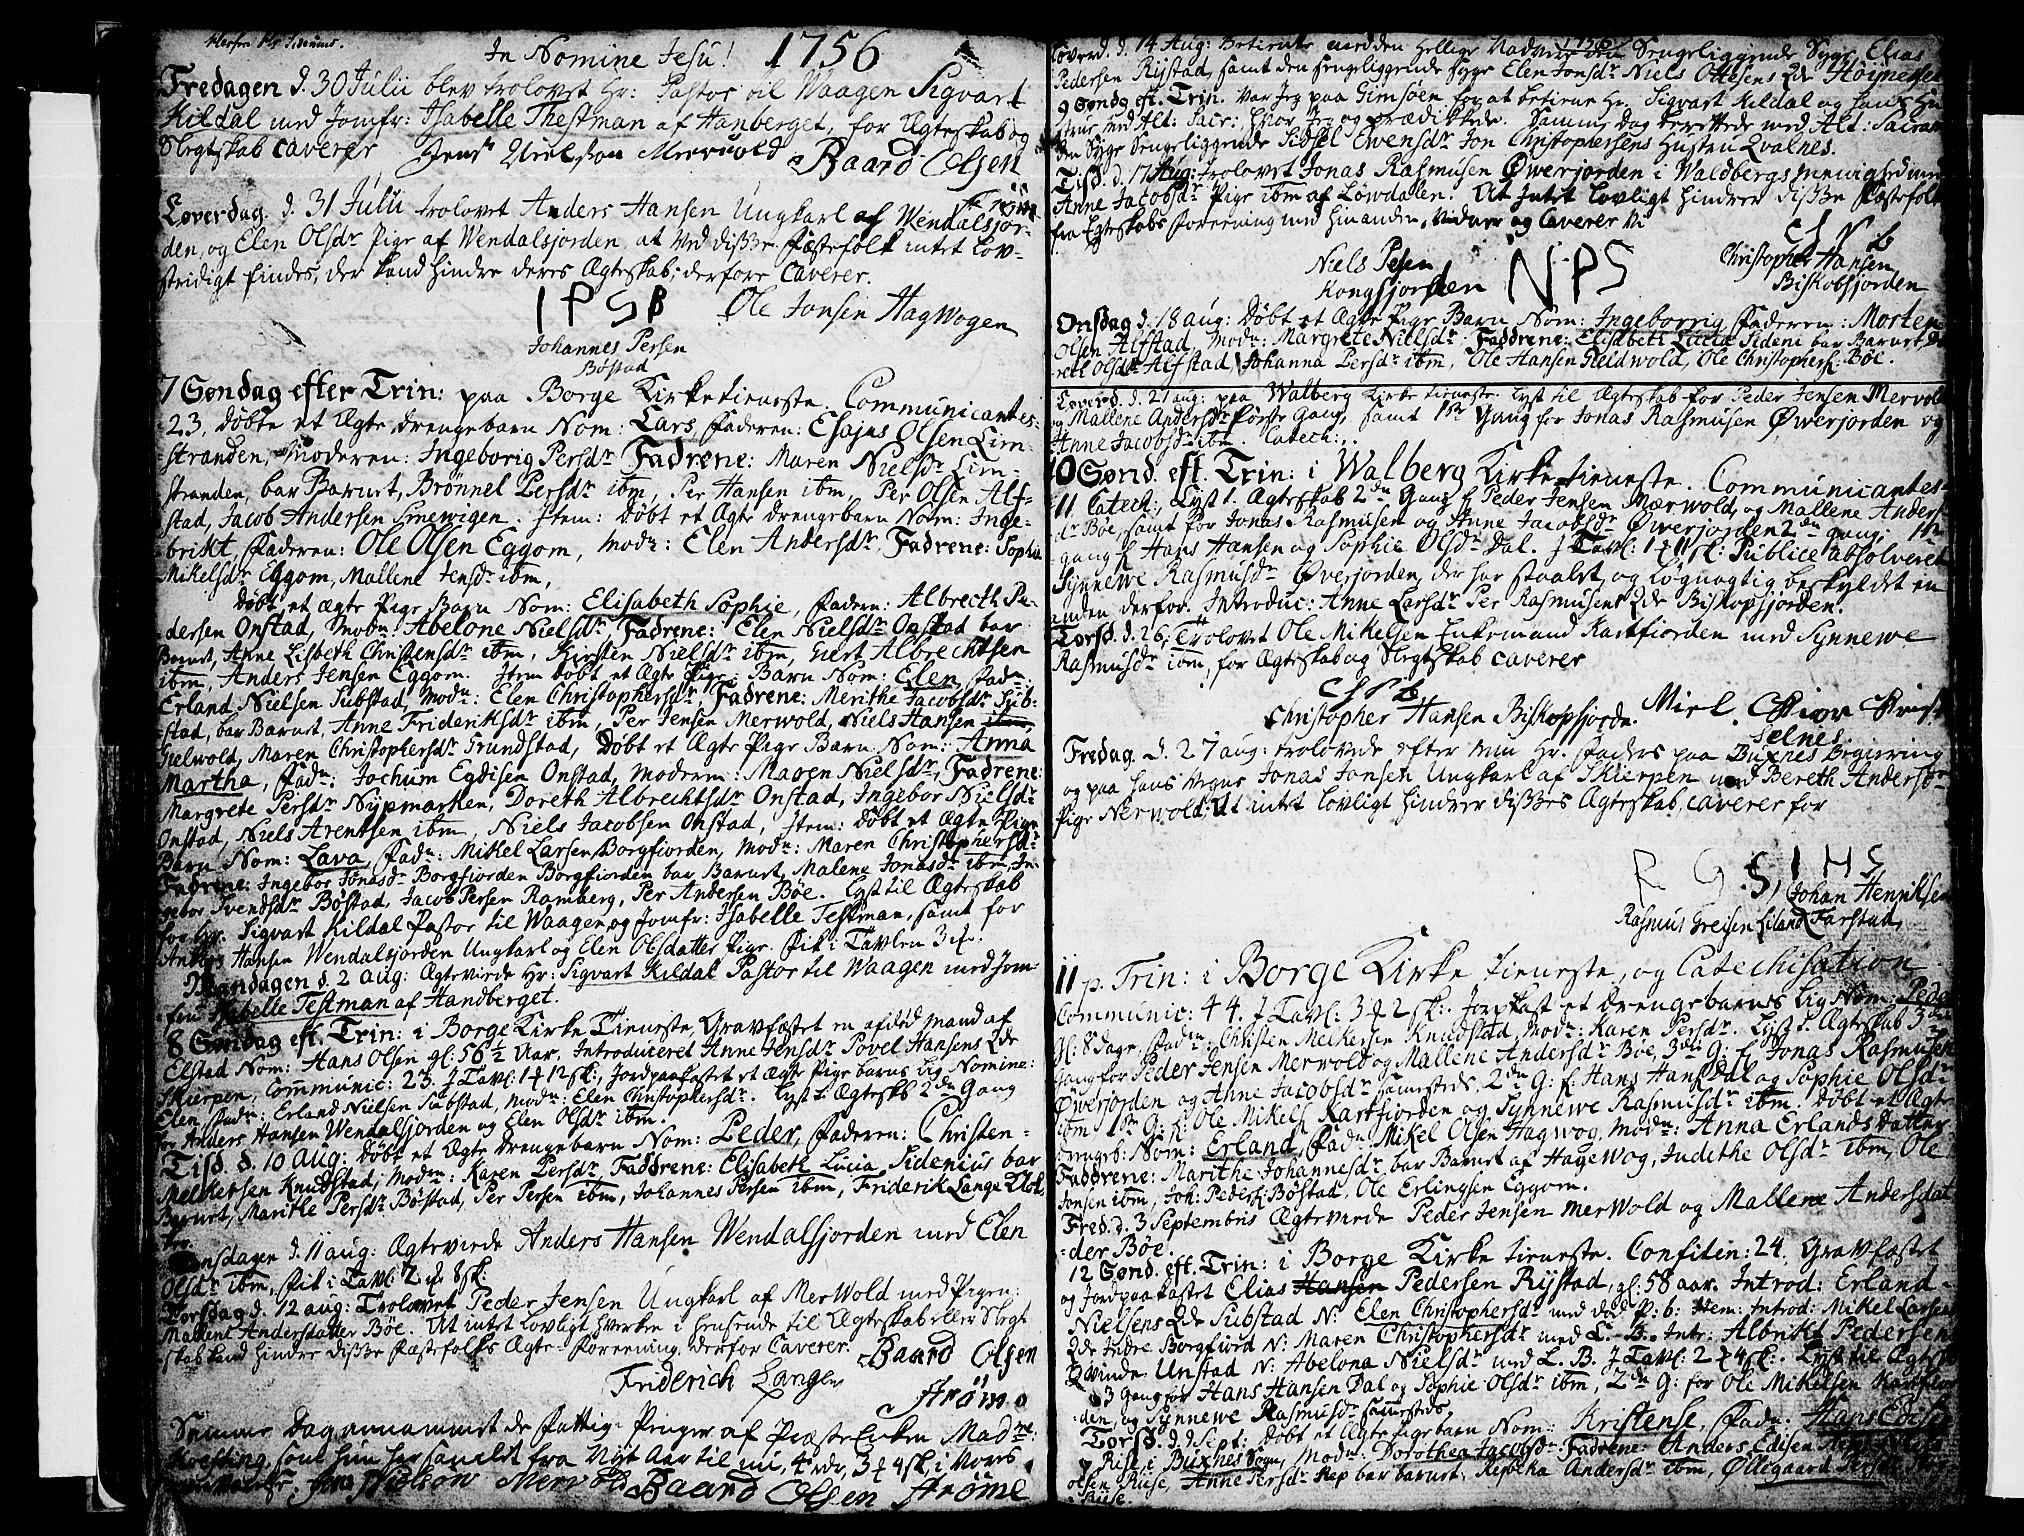 In Nomine Jesu! 1756
Fredagen d. 30 Julii blev trolovet Hr: Pastor til Waagen Sigvart
Kildal med Jomfr: Isabelle Thestman af Hanberget, for Ægteskab og
Slegtskab caverer Jens Nielson Merwold Baard Olsen
Ström
Løverdag d. 31 Julii trolovet Anders Hansen Ungkarl af Wendalsjor-
den, og Elen Olsdr Pige af Wendalsjorden, at ved disse Fæstefolk intet Lov-
stridigt findes, der kand hindre deres Ægteskab, derfore Caverer.
I P S B Ole Jonsen HagWogen
Johannes Persen
Böstad
7 Søndag efter Trin: paa Borge Kirke tieneste. Communicantes:
23, Døbte et Ægte drengebarn Nom: Lars, Faderen: Esajas Olsen Lim-
stranden, Moderen: Ingeborig Persdr Fadrene: Maren Nielsdr Lim-
stranden, bar Barnet, Brønnel Persdr ibm, Per Hansen ibm, Per Olsen Alf-
stad, Jacob Andersen Smewigen. Item: Døbt et Ægte drengebarn Nom: Inge-
brikt, Faderen: Ole Olsen Eggom, Modr: Elen Andersdr, Fadrene: Sophie
Mikelsdr Eggom, Mallene Jensdr ibm,
Døbt et ægte Pige Barn Nom: Elisabeth Sophie, Fadern: Albrecth Pe-
dersen Onstad, Modn: Abelone Nielsdr, Fadrene: Elen Nielsdr Onstad bar
Barnet, Anne Lisbeth Christensdr ibm, Kirsten Nielsdr ibm, Giert Albrechtsen
ibm, Anders Jensen Eggom. Item døbt et Ægte Pige Barn Nom: Elen, Fadn:
Erland Nielsen Substad, Modn: Elen Christophersdr, Fadrene: Merithe Jacobsdr Sub-
stad, bar Barnet, Anne Frideriksdr ibm, Per Jensen Merwold, Niels Hansen ibm,
Gielwold, Maren Christophersdr Grundstad, Døbt et Ægte Pige Barn Nom: Anna
Martha, Fadn: Jochum Egdisen Onstad, Moderen: Maren Nielsdr, Fadrene:
Margrete Persdr Nypmarken, Doreth Albrechtsdr Onstad, Ingebor Nielsdr
Onstad, Niels Arentsen ibm, Niels Jacobsen Onstad, Item: Døbt et Ægte Pige
Barn Nom: Lava, Fadn: Mikel Larsen Borgfiorden, Modn: Maren Christophersdr
Fadrene: Ingebor Jonasdr Borgfiorden Borgfiorden bar Barnet, Malene Jonasdr ibm, In-
gebor Svendsdr Böstad, Jacob Persen Ramberg, Per Andersen Böe. Lyst til Ægteskab
for Hr. Sigvart Kildal Pastor til Waagen og Jomfr: Isabelle Testman, samt for
Anders Hansen Wendalsjorden Ungkarl og Elen Olsdatter Pige.
Mandagen d. 2 Aug: Ægteviede Hr: Sigvart Kildal Pastor til Waagen med Jom-
fru Isabelle Testman af Handberget.
8 Søndag eft. Trin: i Borge Kirke Tieneste, Gravfæstet en afdød Mand af
Elstad Nom: Hans Olsen gl: 56½ Aar. Introduceret Anne Jensdr Povel Hansens Qde
Skierpen, Communic: 23. I Tavl: 1 # 12 sk:, Jordpaakastet et Ægte Pige barns Lig Nomine:
Elen Fadn: Erland Nielsen Substad, Modn: Elen Christophersdr. Lyst t. Ægteskb 2den Gang
for Anders Hansen Wendalsjorden og Elen Olsdr ibm.
Tisd. d. 10 Aug: Døbt et Ægte drengebarn Nom: Peder, Faderen: Christen
Melkersen Knudstad, Modrn: Karen Persdr Faddrene: Elisabeth Lucia Sidenius bar
Barnet, Marithe Persdr Böstad, Per Persen ibm, Johannes Persen ibm, Friderik Lange
Onsdagen d. 11 Aug: Ægteviede Anders Hansen Wendalsjorden med Elen
Olsdr ibm, Fik i Tavl: 2 # 8 sk:
Torsdag d. 12 Aug: Trolovet Peder Jensen Ungkarl af MerWold med Pigen:
Mallene Andersdatter Böe. At intet lovligt hverken i hensende til Ægteskab eller Slegt
skab kand hindre disse Fæstefolks Ægte-Foreening, derfor Caverer. Baard Olsen
Friderich Langen Ströme
Samme dag annammet de Fattiges Penger af Præste Enken Madme:
som hun har samlet fra Nyt Aar til nu, 4 rdr, 3 # 4 sk, i Vores
Jens Nielsøn Merwold Baard Olsen Ströme
Løverd. d. 14 Aug: Betiente med den Hellige Nadvere 1756 den Sengeliggende Syge Elias
Pedersen Rystad, samt den sengeliggende syge Elen Jonsdr Niels Ottesens Qde Höynesset
9 Søndg eft. Trin. Var Jeg paa Gimsöen for at betiene Hr. Sigvart Kildal og hans Hu-
strue med Alt: Sacr:, hvor Jeg og prædickede. Samme Dag berettede med Alt: Sacram
den Syge Sengeliggende Sidsel Ewensdr Jon Christophersens Hustru Qvalnes.
Tisd. d. 17 Aug: trolovet Jonas Rasmusen Øwerjorden i Waldbergs Menighed med
Anne Jacobsdr Pige ibm af Löwdalen. At Intet Lovligt hindrer disse Fæstefolk
fra Egteskabs Foreening med hinanden, vidner og Caverer vi
Niels Pesen N.P.S C H S B
Kongsjorden Christopher Hansen
Biskobsjorden
Onsdag d. 18 Aug: Døbt et Ægte Pige Barn Nom: Ingeborrig Faderen: Morten
Olsen Alfstad, Modr: Margrete Nielsdr, Faddrene: Elisabeth Lucia Sideni bar Barnet, Do-
reth Olsdr Alfstad, Johanna Persdr ibm, Ole Hansen Gieldwold, Ole Christophers: Böe.
Løverd. d. 21 Aug: paa Walberg Kirke tieneste. Lyst til Ægteskab for Peder Jensen Mervold
og Mallene Andersdr Første Gang, samt 1ste Gang for Jonas Rasmusen Øwerjorden og
Anne Jacobsdr ibm. Catech:
10 Sønd. eft. Trin: i Walberg Kirke tieneste. Communicantes
11 Catech:, Lyst t. Ægteskab 2den Gang f. Peder Jensen Mærwold, og Mallene Anders
dr Böe, samt for Jonas Rasmusen og Anne Jacobsdr Øwerjorden 2den gang, 1ste
gang f. Hans Hansen og Sophie Olsdr Dal. I Tavl: 1 # 11 sk: Publice absolveret
Synnewe Rasmusdr Øverjorden, der har staalet, og Løgnagtig beskyldt en
anden derfor. Introduc: Anne Larsdr Per Rasmusens Qde Biskopsjorden.
Torsd. d. 26, Trolovet Ole Mikelsen Enkemand Kartfiorden med Synnewe
Rasmusdr ibm, for Ægteskab og Slegtskab caverer
C H S B
Christopher Hansen Biskopsjorden.
Selnes.
Fredag d. 27 Aug: trolovede efter min Hr. Faders paa Buxnes Begiering
og paa hans Vegne Jonas Jonsen Ungkarl af Skierpen med Bereth Andersdr
Pige Nerwold; At intet lovligt hindrer disses Ægteskab caverer for
R G S, I H S
Johan Henriksen
Rasmus Greisen Liland Farstad
11 p. Trin: i Borge Kirke tieneste, og Catechisation
Communic: 44. I Tavl: 3 # 2 sk:. Jordkast et Drengebarnes Lig Nom: Peder
gl: 8 dage, Fadn: Christen Melkersen Knudstad, Modn: Karen Persdr. Lyst t. Ægteskab 3die
Gang for Peder Jensen Merwold og Mallene Andersdr Böe, 3die G: f. Jonas Rasmusen
Øwerjorden og Anne Jacobsdr sammesteds, 2den G: f: Hans Hans: Dal og Sophie Olsdr
ibm 1ste G: f: Ole Mikels: Kartfiorden og Synnewe Rasmusdr ibm. Døbt et Ægte
drengeb: Nom: Erland, Fadn: Mikel Olsen Hagwog, Modn: Anna Erlands Datter
Faddrene: Marithe Johannesdr bar Barnet af HageWog, Judithe Olsdr ibm, Ole
Jonsen ibm, Joh: Peders: Böstad, Ole Erlingsen Eggom.
Fred. d. 3 Septembris Ægteviede Peder Jensen MerWold og Mallene Andersdat
der Böe.
12 Sønd. eft. Trin: i Borge Kirke tieneste. Confiten: 24. Gravfæstet
og Jordpaakastet Elias Hansen Pedersen Rijstad, gl: 58 aar. Introd: Erland
Nielsens Qde Substad N: Elen Christophersdr med død P: b: Item: Introd: Mikel Larsens
Qde Indre Borgfiord N: Maren Christophersdr med L. B. Intr: Albrikt Pedersens
Qvinde Unstad N: Abelona Nielsdr med L. B. I Tavl: 2 # 4 sk:. Lyst til Ægtesk
3 gang for Hans Hansen Dal og Sophie Olsdr ibm, 2den G: for Ole Mikelsen Kartfior
den, og Synnewe Rasmusdr sammesteds,
Torsd. d. 9 Sept: Døbt et Ægte Pigebarn Nom: Kristense, Fadn. Hans Edisen
Rise i Buxnes Sogn, Modn: Dorothea Jacobsdr. Fadrene: Anders Edisen
Olsen Riise, Anne Persdr Rep bar barnet. Rebecka Andersdr ibm, Øllegaard Persdr
Riise.